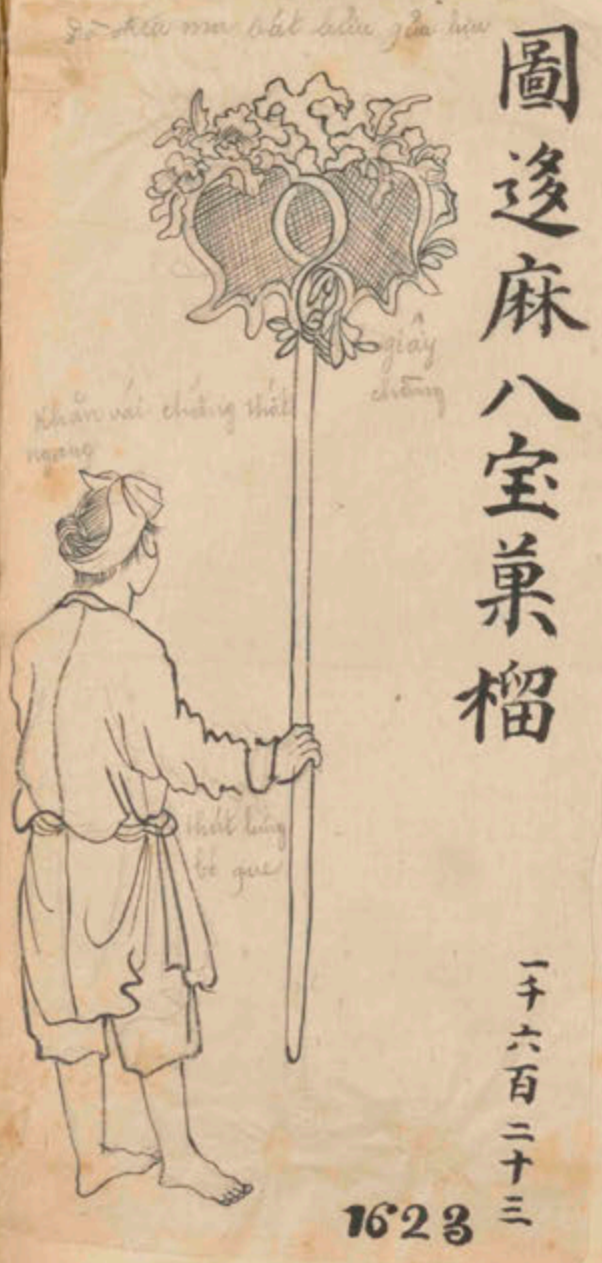 Đồ đưa ma bát bửu quả lựu
圖迻麻八宝菓榴
giấy
chắng
Khăn vải chắng thắt
ngang
thắt lưng
bỏ que
一千六百二十三
1623